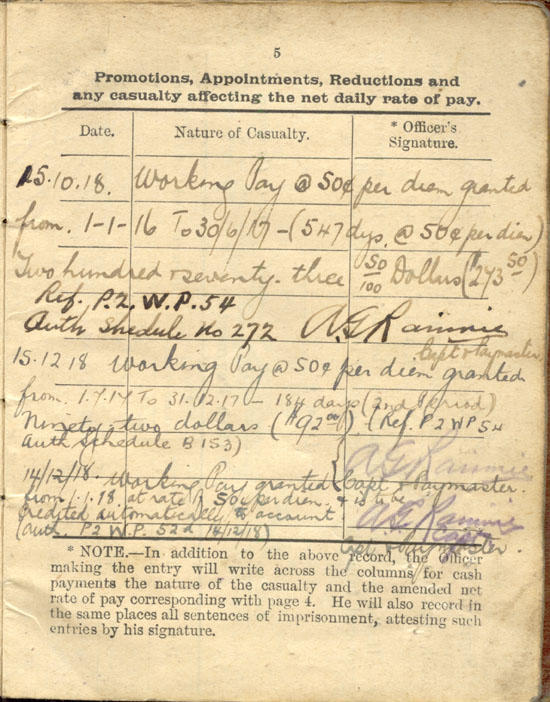 5
Promotions, Appointments, Reductions and
any casualty affecting the net daily rate of pay.
Date. Nature of Casualty. * Officer's Signature.
15.10.18. Working Pay @ 50¢ per diem granted
from. 1-1-16 To 30/6/17 - (547 dys. @ 50¢ per diem)
Two hundred & seventy. three 50/100 Dollars ($273 50)
Ref. P.2. W.P. 54
Auth Shedule No 272 A G Rainnie
Capt & Paymaster
15.12.18 Working Pay @ 50¢ per diem granted
from 1.7.17 To 31.12.17 - 184 days (2nd Period)
Ninety-two dollars ($92 00). (Ref. P2 WP 54
Auth Schedule B 153)
A G Rainnie
14/12/18. Working Pay granted Capt & Paymaster.
from 1.1.18 at rate of 50¢ per diem. & is to be
credited automatically to account A G Rainnie
(auth. P2 W.P. 52d 14/12/18) Capt
Capt & Paymaster.
* NOTE.—In addition to the above record, the Officer
making the entry will write across the columns for cash
payments the nature of the casualty and the amended net
rate of pay corresponding with page 4. He will also record in
the same places all sentences of imprisonment, attesting such
entries by his signature.